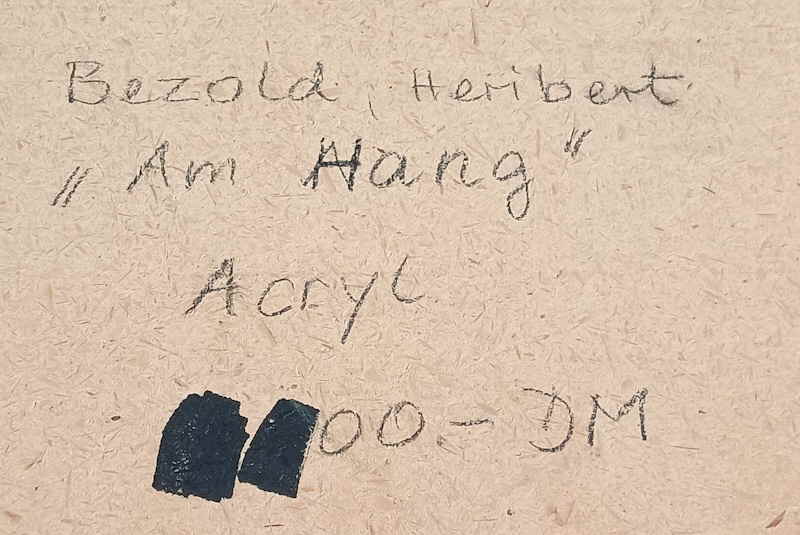 Bezold, Heribert
„Am Hang“
Acryl
00.- DM